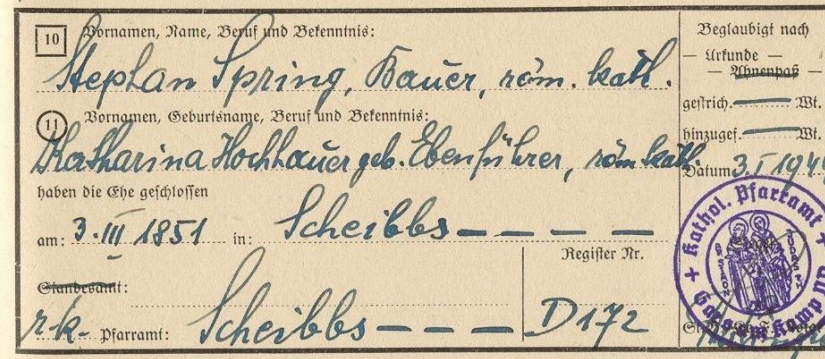 10 Vornamen, Name, Beruf und Bekenntnis:
Stephan Spring, Bauer, röm. kath.
11 Vornamen, Geburtsname, Beruf und Bekenntnis:
Katharina Hochhauer geb. Ebenführer, röm. kath.
haben die Ehe geschlossen
am: 3. III 1851 in: Scheibbs — — — —
Register Nr.
Standesamt:
r.k. Pfarramt: Scheibbs — — — D 172
Beglaubigt nach
— Urkunde —
— Ahnenpaß —
gestrich. — Wt.
hinzugef. — Wt.
Datum 3. I 194
+ Kathol. Pfarramt +